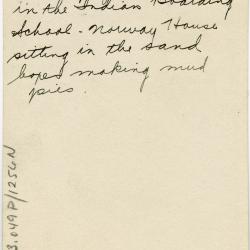 in the Indian Boarding
School - Norway House
sitting in the sand
boxes making mud
pies.
3.049P/1256N